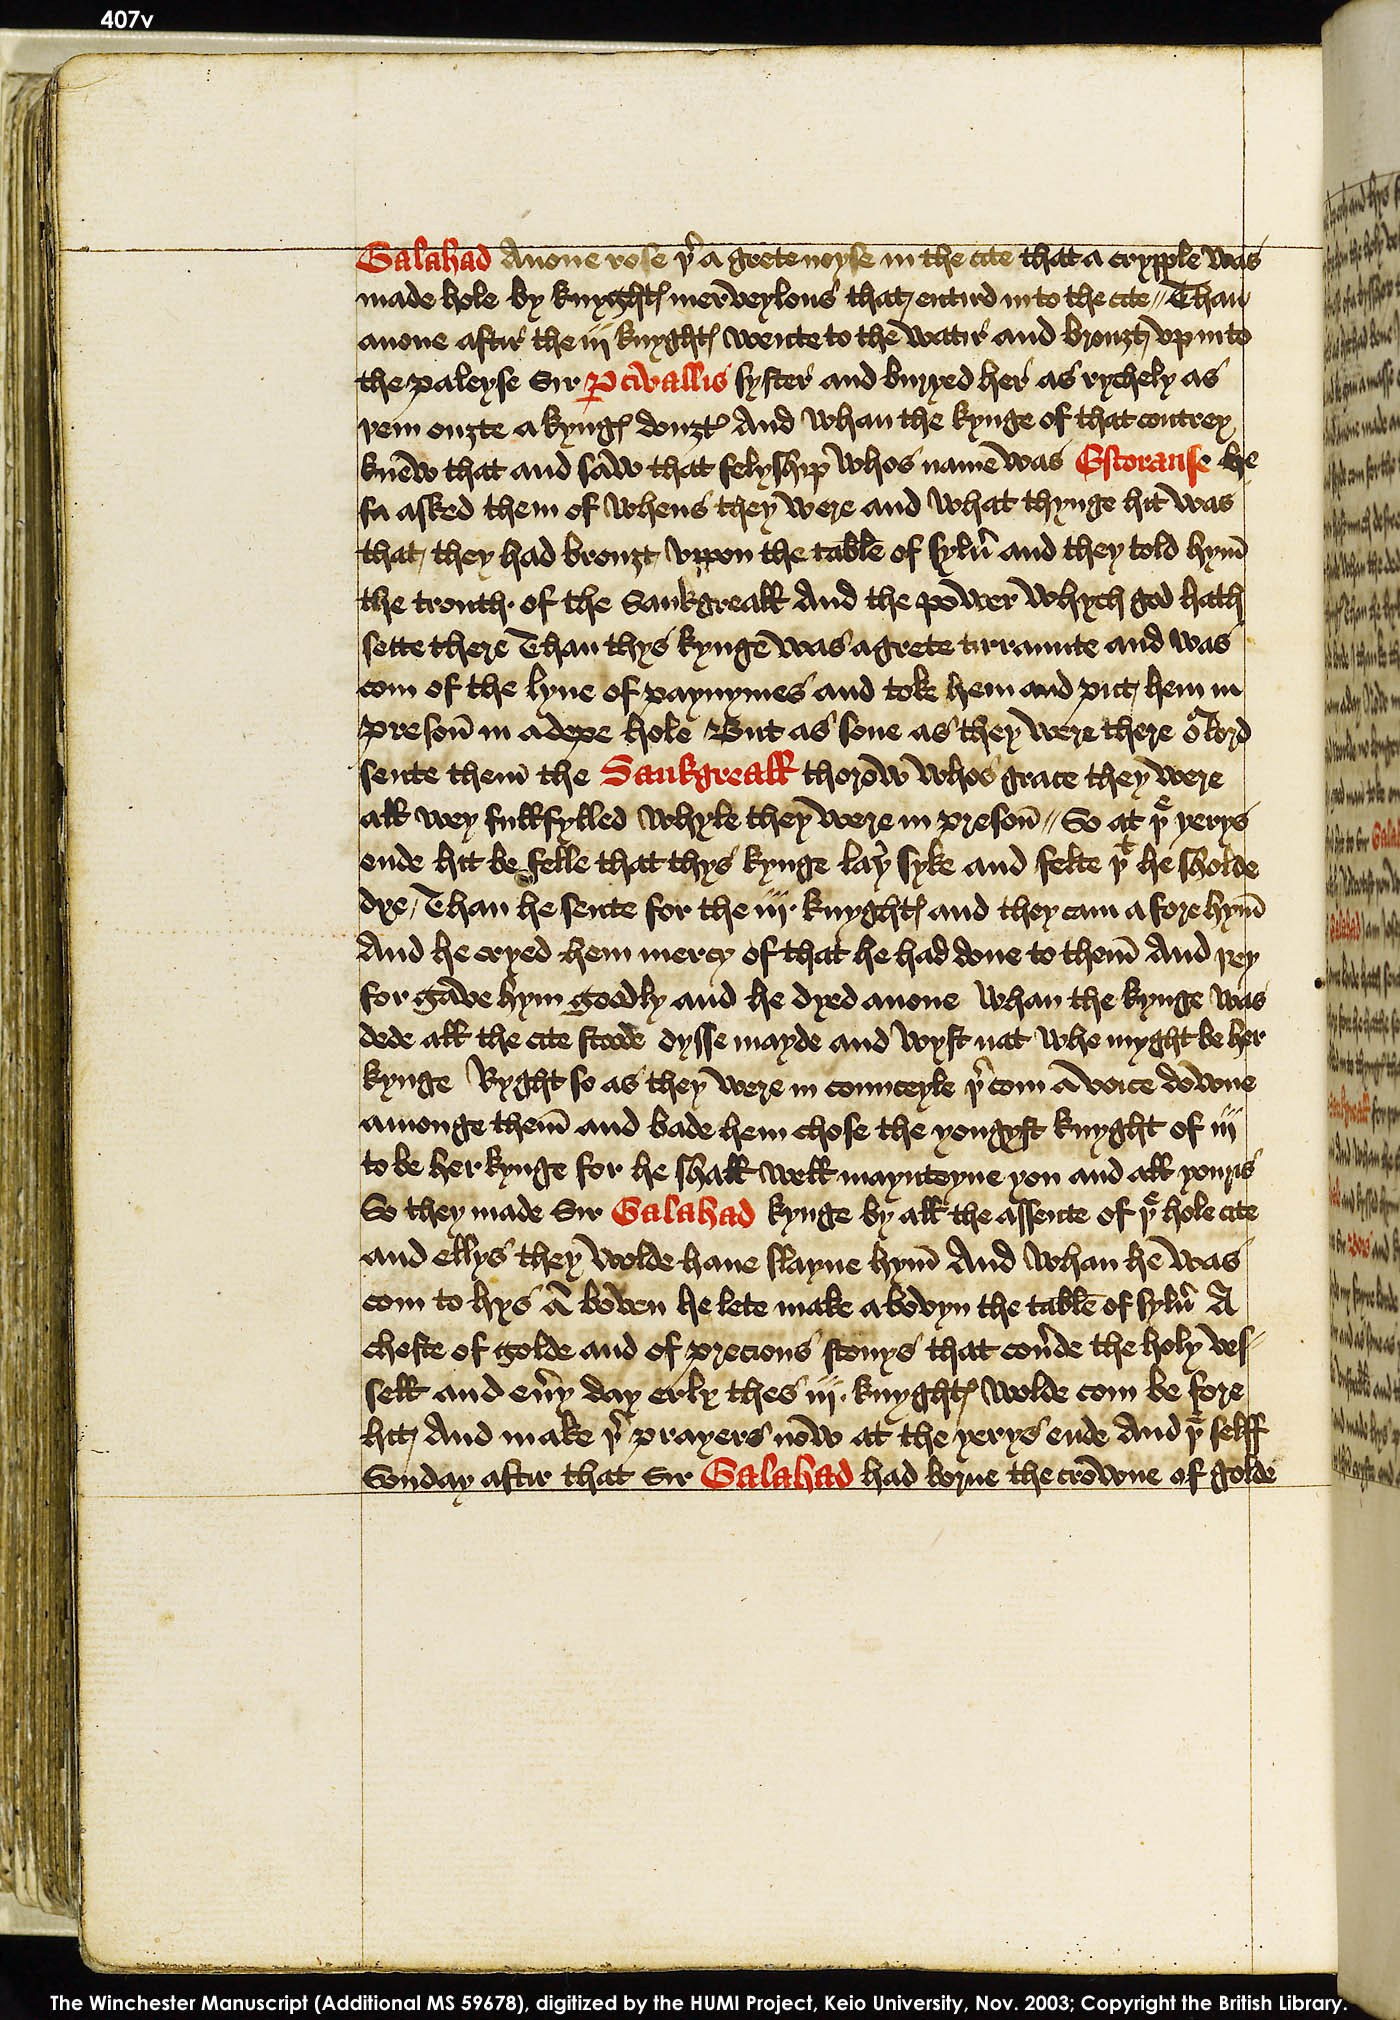 407v
Galahad Anone rose þr a grete noyse in the cite that a crypple was
made hole by knyghtes merveylous that entird in to the cite // Than
anone aftir the iij knyghtes wente to the watir and brouȝt up in to
the paleyse Sir Percivallis syster and buryed her as rychely as
þem ouȝte a kynges douȝter And whan the kynge of that contrey
knew that and saw that felyship whos name was Estoranse he
asked them of whens they were and what thynge hit was
that they had brouȝt uppon the table of sylver and they told hym
the trouth of the Sankgreall And the power whych god hath
sette there Than thys kynge was a grete tirraunte and was
com of the lyne of paynymes and toke hem and put hem in
preson in a depe hole But as sone as they were there oure lord
sente them the Sankgreall thorow whos grace they were
all wey fullfylled whyle they were in preson // So at þe yerys
ende hit be felle that thys kynge lay syke and felte þt he sholde
dye / Than he sente for the iij knyghtes and they cam a fore hym
And he cryed hem mercy of that he had done to them And þey
for gave hym goodly and he dyed anone Whan the kynge was
dede all the cite stoode dysse mayde and wyst nat who myght be her
kynge Ryght so as they were in counceyle þr com a voice downe
amonge them and bade hem chose the yongyst knyght of iij
to be her kynge for he shall well maynteyne you and all youris
So they made Sir Galahad kynge by all the assente of þe hole cite
and ellys they wolde have slayne hym And whan he was
com to hys a boven he lete make a bovyn the table of sylver A
cheste of golde and of precious stonys that coverde the holy ves-
sell and every day erly thes iij knyghtes wolde com be fore
hit And make þr prayers now at the yerys ende And þe selff
Sonday aftir that Sir Galahad had borne the crowne of golde
The Winchester Manuscript (Additional MS 59678), digitized by the HUMI Project, Keio University, Nov. 2003; Copyright the British Library.